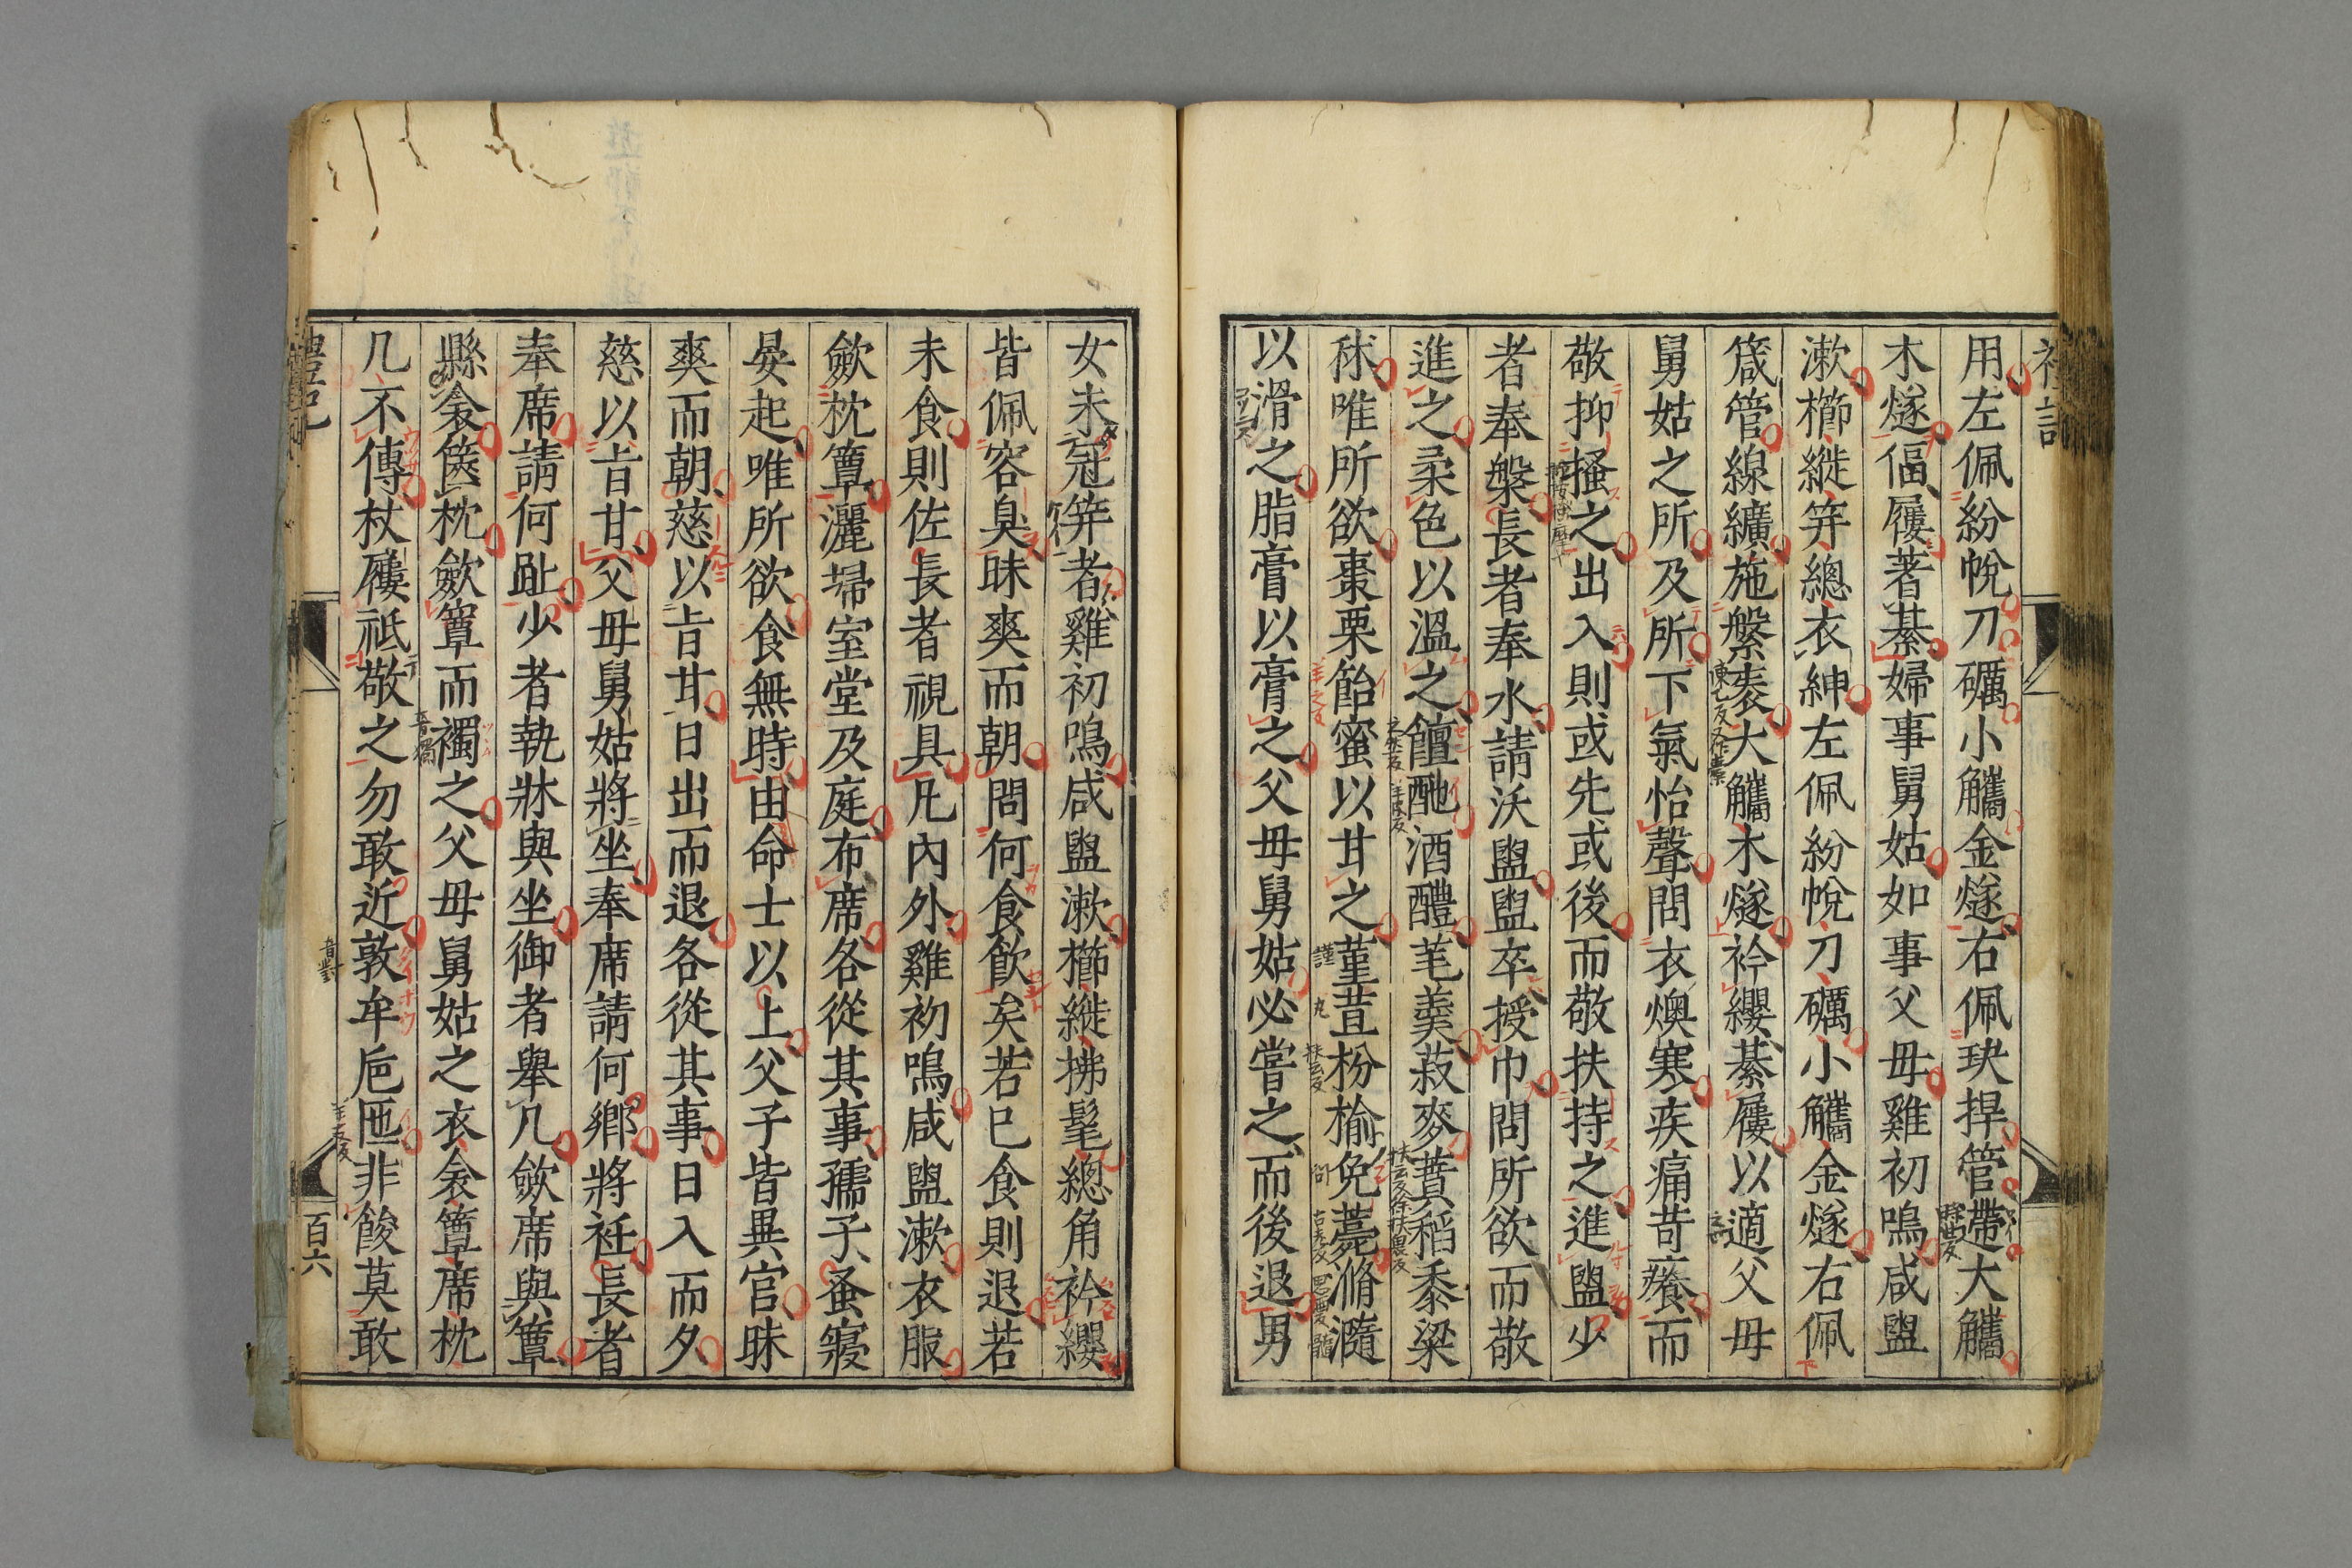 禮記
用左佩紛帨刀礪小觿金燧右佩玦捍管遰大觿
木燧偪屨著綦婦事舅姑如事父母雞初鳴咸盥
漱櫛縰笄總衣紳左佩紛帨刀礪小觿金燧右佩
箴管線纊施縏袠大觿木燧衿纓綦屨以適父母
舅姑之所及所下氣怡聲問衣燠寒疾痛苛癢而
敬抑搔之出入則或先或後而敬扶持之進盥少
者奉槃長者奉水請沃盥盥卒授巾問所欲而敬
進之柔色以溫之饘酏酒醴芼羹菽麥蕡稻黍粱
秫唯所欲棗栗飴蜜以甘之堇荁枌榆免薧滫瀡
以滑之脂膏以膏之父母舅姑必嘗之而後退男
女未冠笄者雞初鳴咸盥漱櫛縰拂髦總角衿纓
皆佩容臭昧爽而朝問何食飲矣若已食則退若
未食則佐長者視具凡內外雞初鳴咸盥漱衣服
斂枕簟灑埽室堂及庭布席各從其事孺子蚤寢
晏起唯所欲食無時由命士以上父子皆異宮昧
爽而朝慈以旨甘日出而退各從其事日入而夕
慈以旨甘父母舅姑將坐奉席請何鄉將衽長者
奉席請何趾少者執牀與坐御者舉几斂席與簟
縣衾篋枕斂簟而襡之父母舅姑之衣衾簟席枕
几不傳杖屨祗敬之勿敢近敦牟卮匜非餕莫敢
禮記
百六